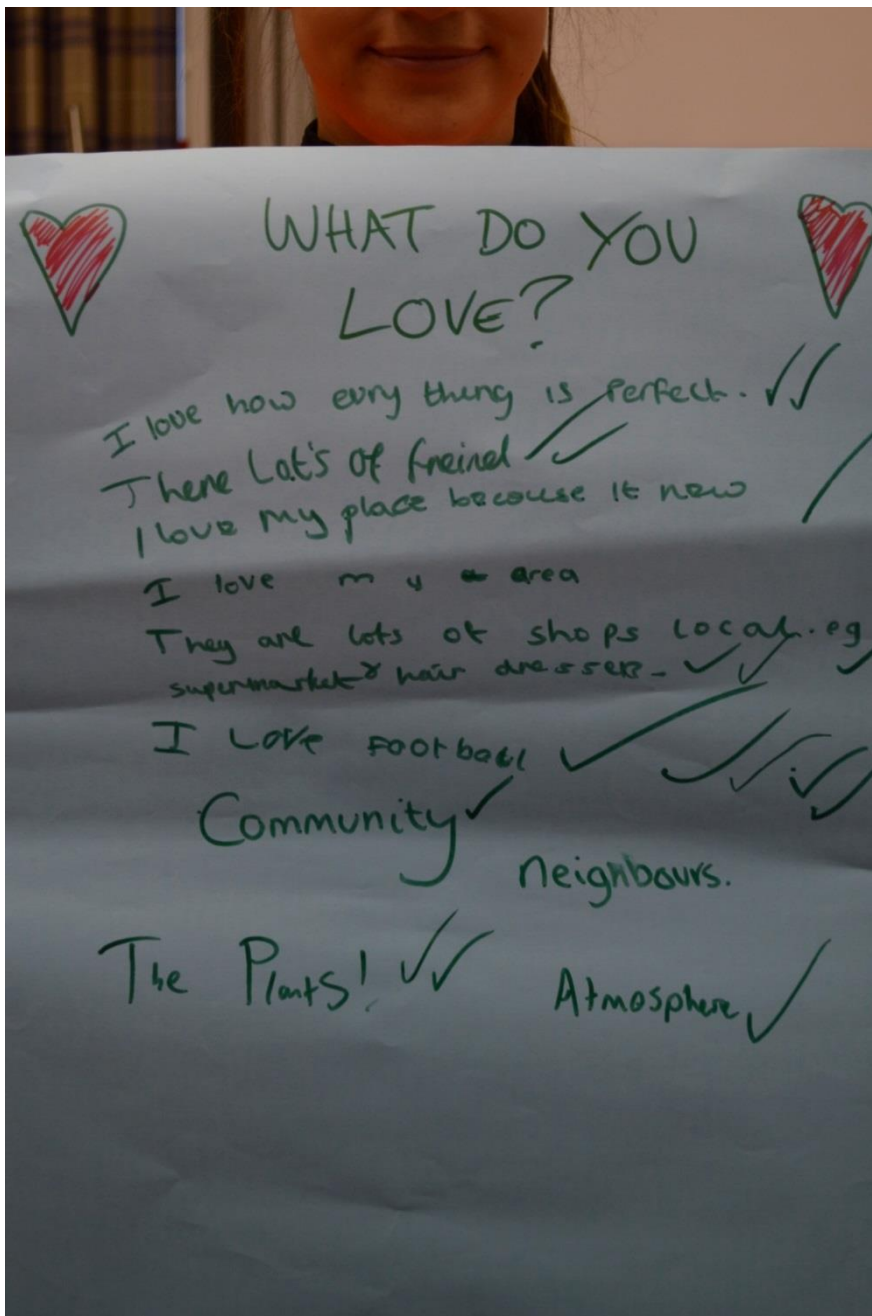 WHAT DO YOU
LOVE?
I love how evry thing is perfect.
There Lot's of freind
I love my place becouse it new
I love my area
They are lots of shops local. eg
supermarket & hair dressers.
I Love Football
Community
neighbours.
The Plants!
Atmosphere